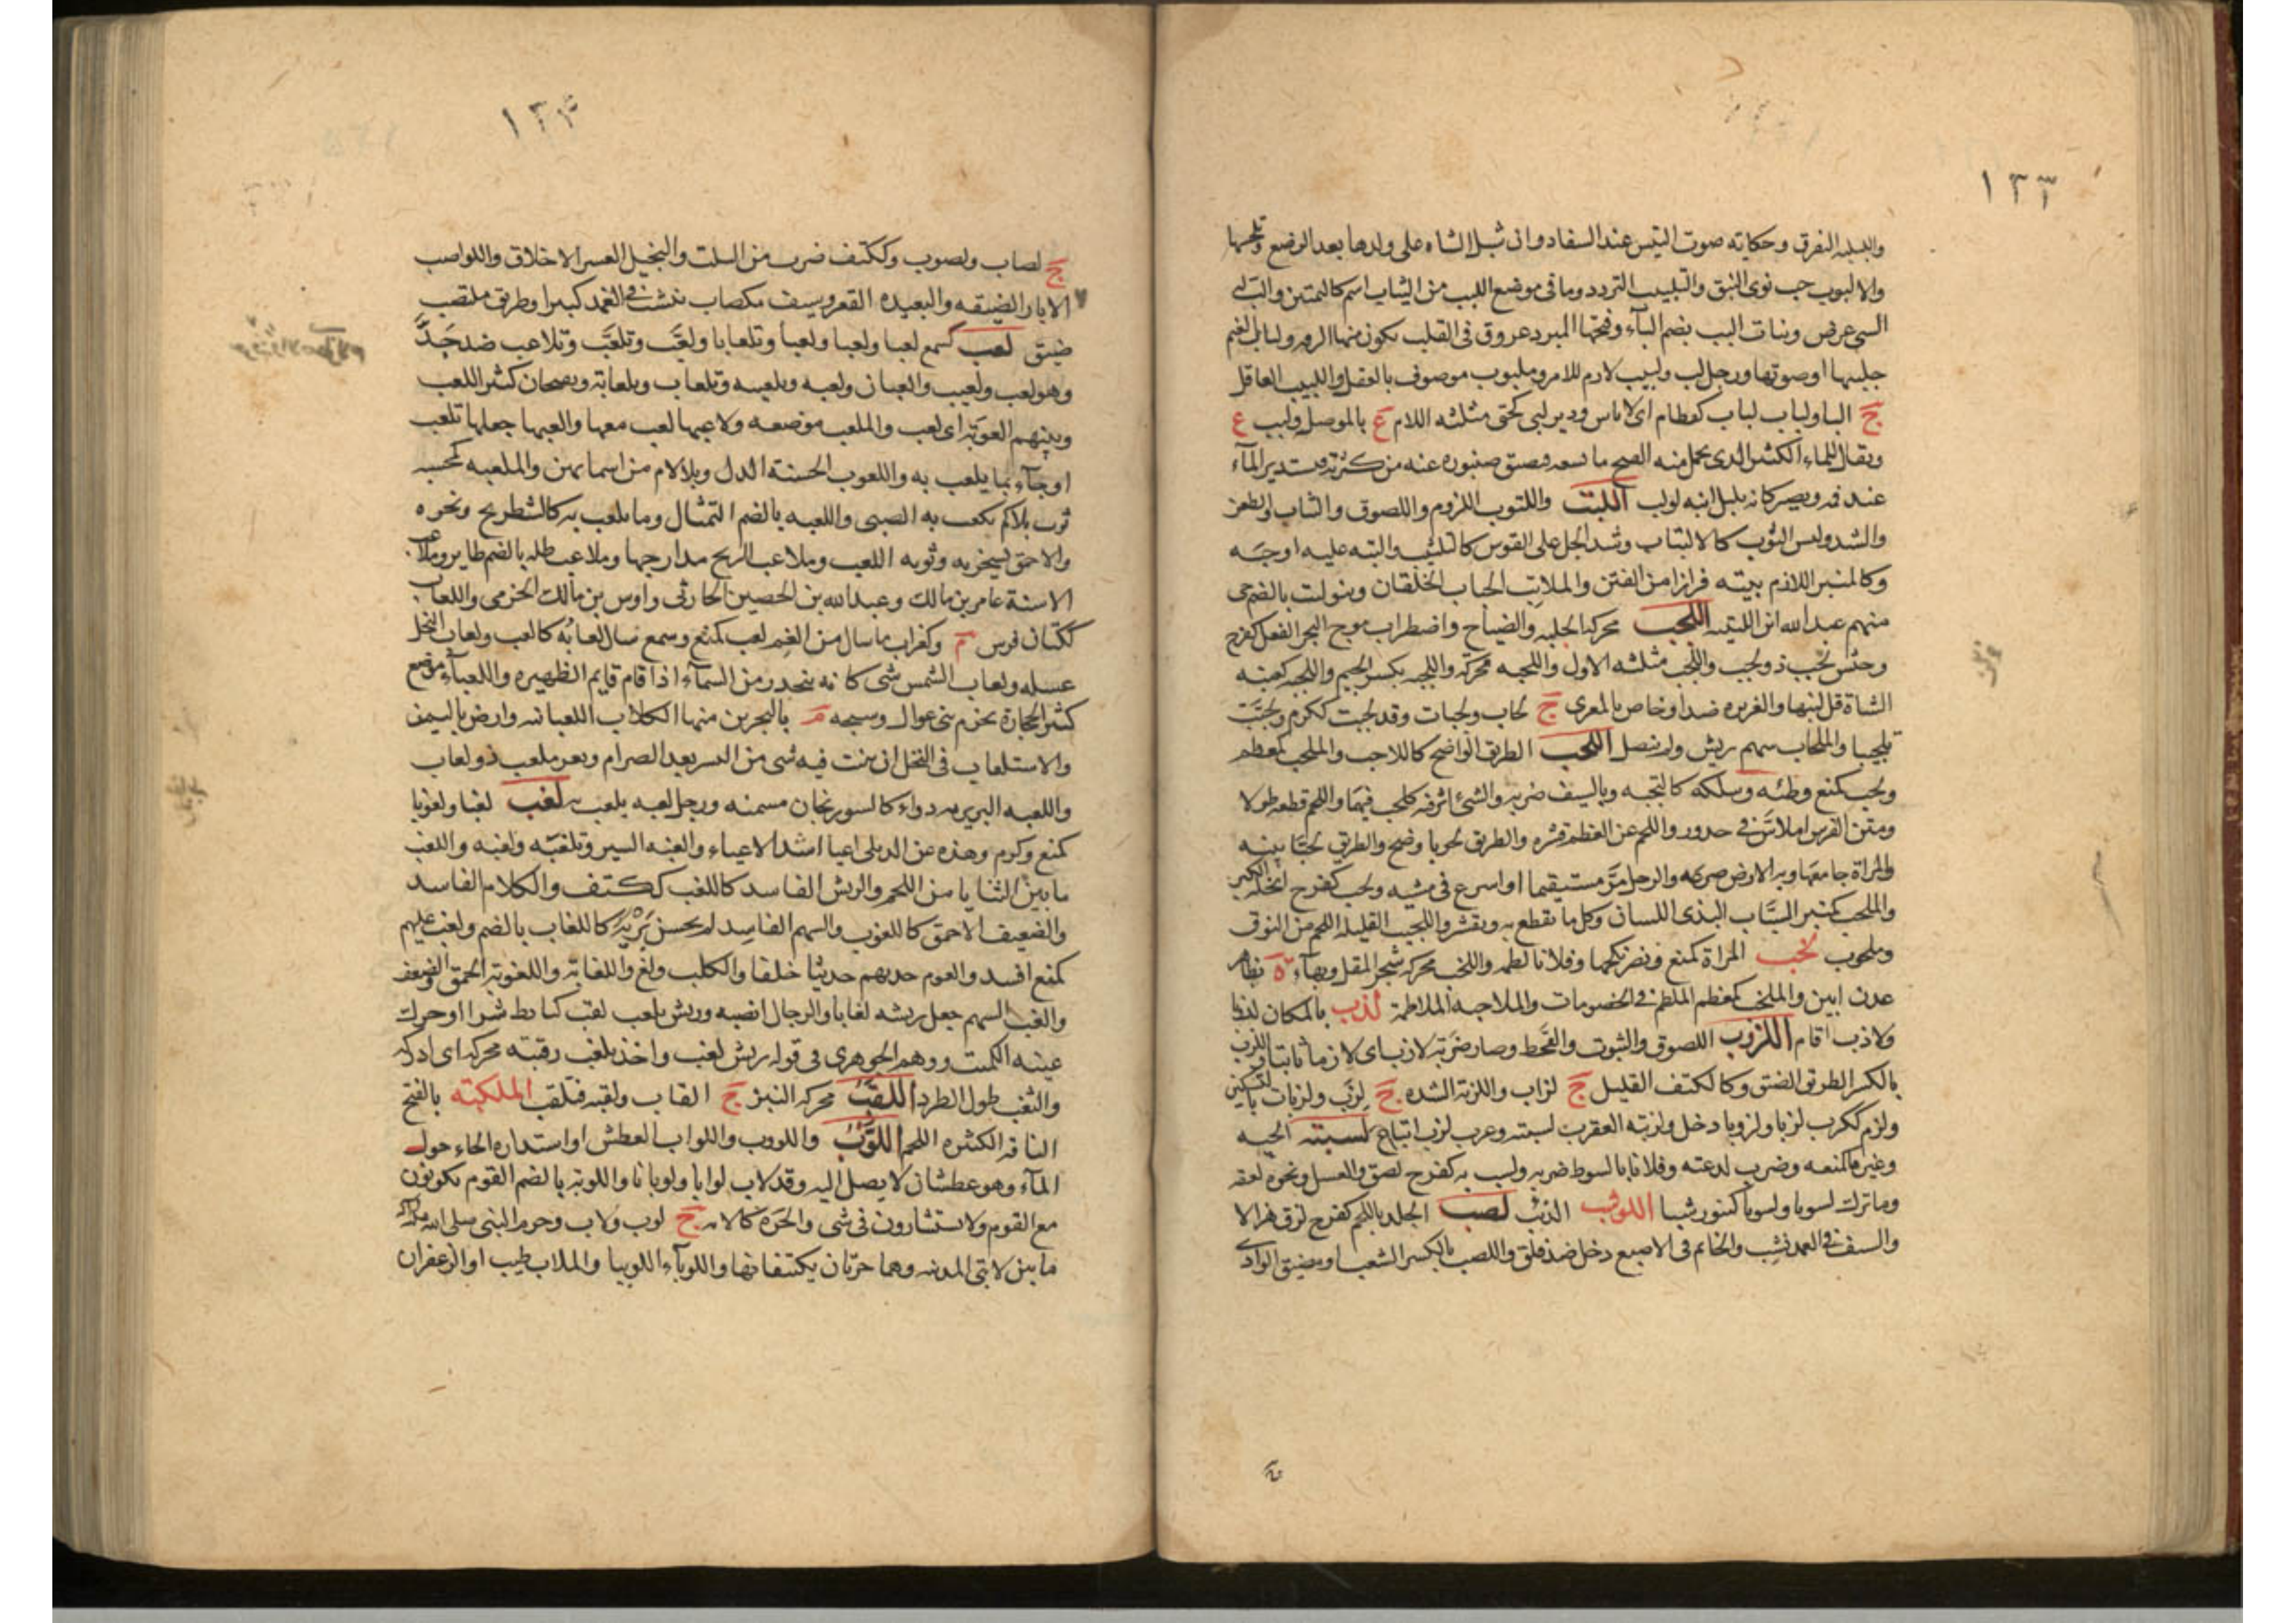 ١٣٣
واللبلبه التفرق وحكاية صوت التيس عند السفاد وان تشبل الشاه على ولدها بعد الوضع وتلحسها
والالبوب حب نوى النبق والتلبيب التردد وما فى موضع اللبب من الثياب اسم كالتمتين
السى عرض وبنات البب بضم البآء وفتحها المبرد عروق فى القلب يكون منها الرقه ولبالب الغنم
جلبتها اوصوتها ورجل لب ولبيب لازم للامر وملبوب موصوف بالعقل واللبيب العاقل
ج البا ولباب لباب كقطام اى لا باس ودير لبى كحتى مثلثه اللام ع بالموصل ولبب ع
ويقال للماء الكثير الذى يحمل منه الفتح ما يسعه فيضيق صنبوره عنه من كثرته فيستدير المآء
عند فمه ويصير كانه بلبل انيه لولب اللتب واللتوب اللزوم واللصوق والثبات والطعن
والشد ولبس الثوب كالالتتاب وشد الجل على الفرس كالتلتيب والتبه عليه اوجبه
وكالمنبر اللازم بيته فرارا من الفتن والملاتب الجباب الخلقان وبنو لتب بالضم حى
منهم عبد الله ابن اللتبيه اللجب محركه الجلبه والصياح واضطراب موج البحر الفعل كفرح
وجيش لجب ذو لجب واللجب مثلثه الاول واللجبه محركة واللجبه بكسر الجيم واللجبه كعنبه
الشاة قل لبنها والغزيره ضد او خاص بالمعزى ج لجاب ولجبات وقد لجبت ككرم ولجبت
تلجيبا والملجاب سهم ريش ولم ينصل اللحب الطريق الواضح كاللاحب والملحب كمعظم
ولحب كمنع وطئه وسلكه كالتحبه وبالسيف ضربه والشئ اثر فيه كلحب فيهما واللحم قطعه طولا
ومتن الفرس املاس فى حدور واللحم عن العظم قشره والطريق لحوبا وضح والطريق لحبا بينه
والمراة جامعها وبه الارض صرعه والرجل مر مستقيما او اسرع فى مشيه ولحب كفرح انحله الكبر
والملحب كمنبر السباب البذى اللسان وكل ما يقطع به ويقشر واللحيب القليله اللحم من النوق
وملحوب لخب المراة كمنع ونصر نكحها وفلانا لطمه واللخب محركه شجر المقل وبهآء ة بظاهر
عدن ابين والملخب كمعظم الملطم فى الخصومات والملاخبه الملاطمة لذب بالمكان لذبا
ولاذب اقام اللزوب اللصوق والثبوت والقحط وصار ضربة لازب اى لازما ثابتا واللزب
بالكسر الطريق الضيق وكالكتف القليل ج لزاب واللزبة الشده ج لزب ولزبات بالتسكين
ولزم ككرب لزبا ولزوبا دخل ولزبته العقرب لسبته وعرب لزب اتباع لسبته الحيه
وغيرها كمنعه وضرب لدغته وفلانا بالسوط ضربه ولسب به كفرح لصق والعسل ونحوه لعقه
وما ترك لسوبا ولسوبا كتنور شيا اللوشب الذئب لصب الجلد باللحم كفرح لزق هزالا
والسيف فى الغمد نشب والخاتم فى الاصبع دخل ضد قلق واللصب بالكسر الشعب او مضيق الوادى
١٣٤
ج لصاب ولصوب وككتف ضرب من السلت والبخيل العسر الاخلاق واللواصب
الابار الضيقه والبعيده القعر وسيف ملصاب ينشب فى الغمد كثيرا وطريق ملتصب
ضيق لعب كسمع لعبا ولعبا ولعبا وتلعابا ولعب وتلعب وتلاعب ضد جد
وهو لعب ولعيب والعبان ولعبه وتلعيبه وتلعاب وتلعابة وبصحان كثير اللعب
وبينهم العوبة اى لعب والملعب موضعه ولاعبها لعب معها والعبها جعلها تلعب
او جآء بما يلعب به واللعوب الحسنة الدل وبلا لام من اسمايهن والملعبه كمحسنه
ثوب بلا كم يلعب به الصبى واللعبه بالضم التمثال وما يلعب به كالشطرنج ونحوه
والاحمق يسخر به ونوبه اللعب وملاعب الريح مدارجها وملاعب ظله بالضم طاير وملاعب
الاسنة عامر بن مالك وعبد الله بن الحصين الحارثى واوس بن مالك الجرمى واللعاب
ككتان فرس م وكغراب ما سال من الفم لعب كمنع وسمع سال لعابه كالعب ولعاب النحل
عسله ولعاب الشمس شى كانه ينحدر من السمآء اذا قام قايم الظهيره واللعبآء موضع
كثير الحجارة بحزم بنى عوال وسبخه م بالبحرين منها الكلاب اللعبانيه وارض باليمن
والاستلعاب فى النخل ان ينبت فيه شى من البسر بعد الصرام وثغر ملعب ذو لعاب
واللعبه البربريه دواء كالسورنجان مسمنه ورجل لعبه يلعب به لغب لغبا ولغوبا
كمنع وكرم وهذه عن اللبلى اعيا اشد الاعياء والغبه السير وتلغبه ولغبه واللغب
ما بين الثنايا من اللحم والريش الفاسد كاللغب ككتف والكلام الفاسد
والضعيف الاحمق كاللغوب والسهم الفاسد لم يحسن بريه كاللغاب بالضم ولغب عليهم
كمنع افسد والقوم حدثهم حديثا خلفا والكلب ولغ واللغابة واللغوبة الحمق والضعف
والغب السهم جعل ريشه لغابا والرجال انصبه وريش بلغب لقب كتابط شرا او حرك
عينه الكميت ووهم الجوهرى فى قوله ريش لغب واخذ بلغب رقبته محركه اى ادركه
والتغلب طول الطرد اللقب محركه النبز ج القاب ولقبه فتلقب الملكبة بالفتح
الناقه الكثيره اللحم اللوب واللووب واللواب العطش او استداره الحائم حول
المآء وهو عطشان لا يصل اليه وقد لاب لوبا ولوبانا واللوبة بالضم القوم يكونون
مع القوم ولا يستشارون فى شى والحره كاللابه ج لوب ولاب وحرم النبى صلى الله عليه
ما بين لابتى المدينه وهما حرتان يكتنفانها واللوبآء اللوبيا والملاب طيب او الزعفران